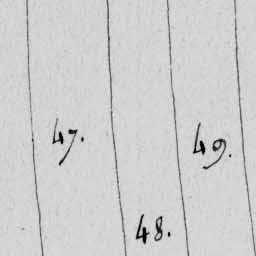 47.
49.
48.